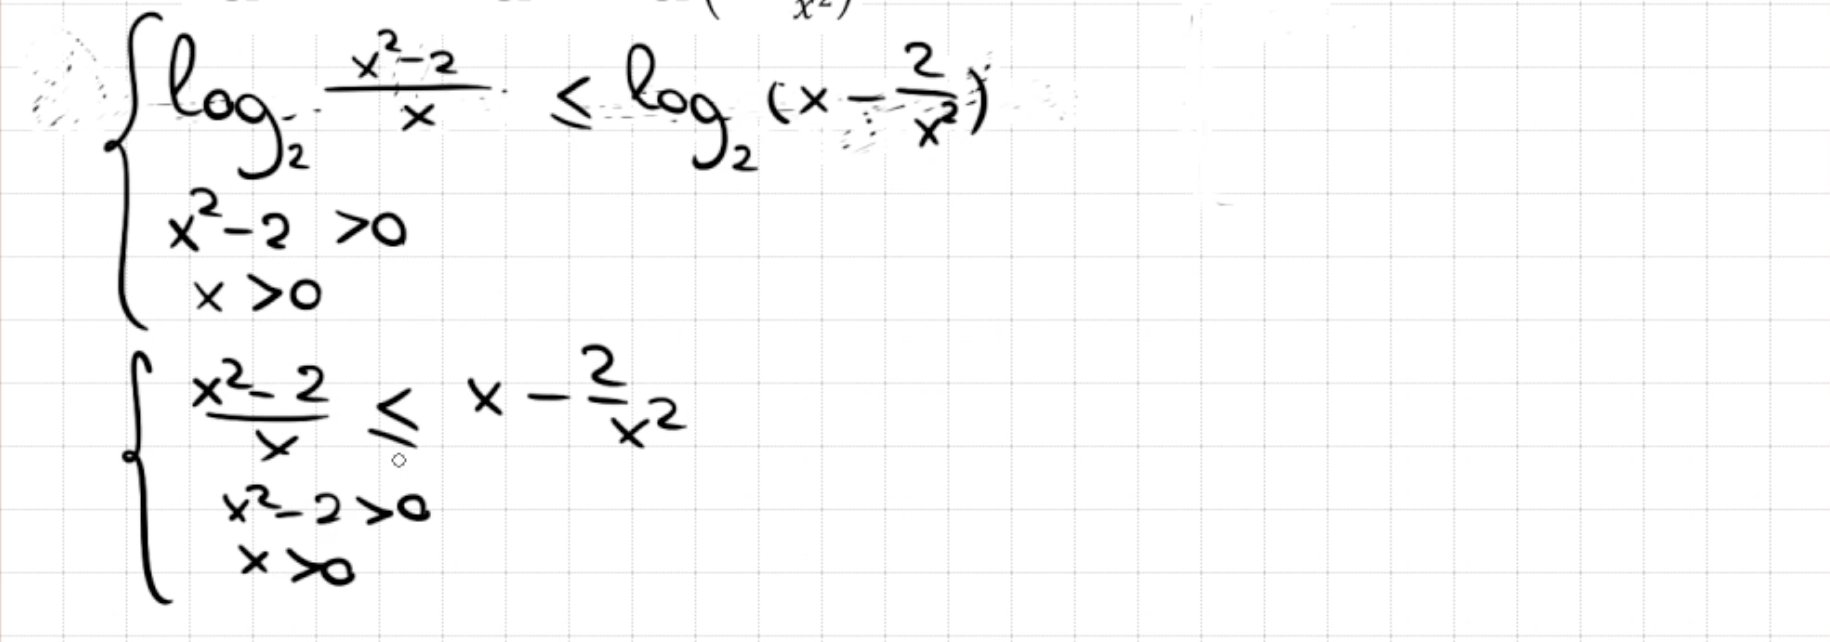 x²)
log₂ (x²-2)/x ≤ log₂ (x - 2/x²)
x²-2 >0
x >0
(x²-2)/x ≤ x - 2/x²
x²-2 >0
x >0